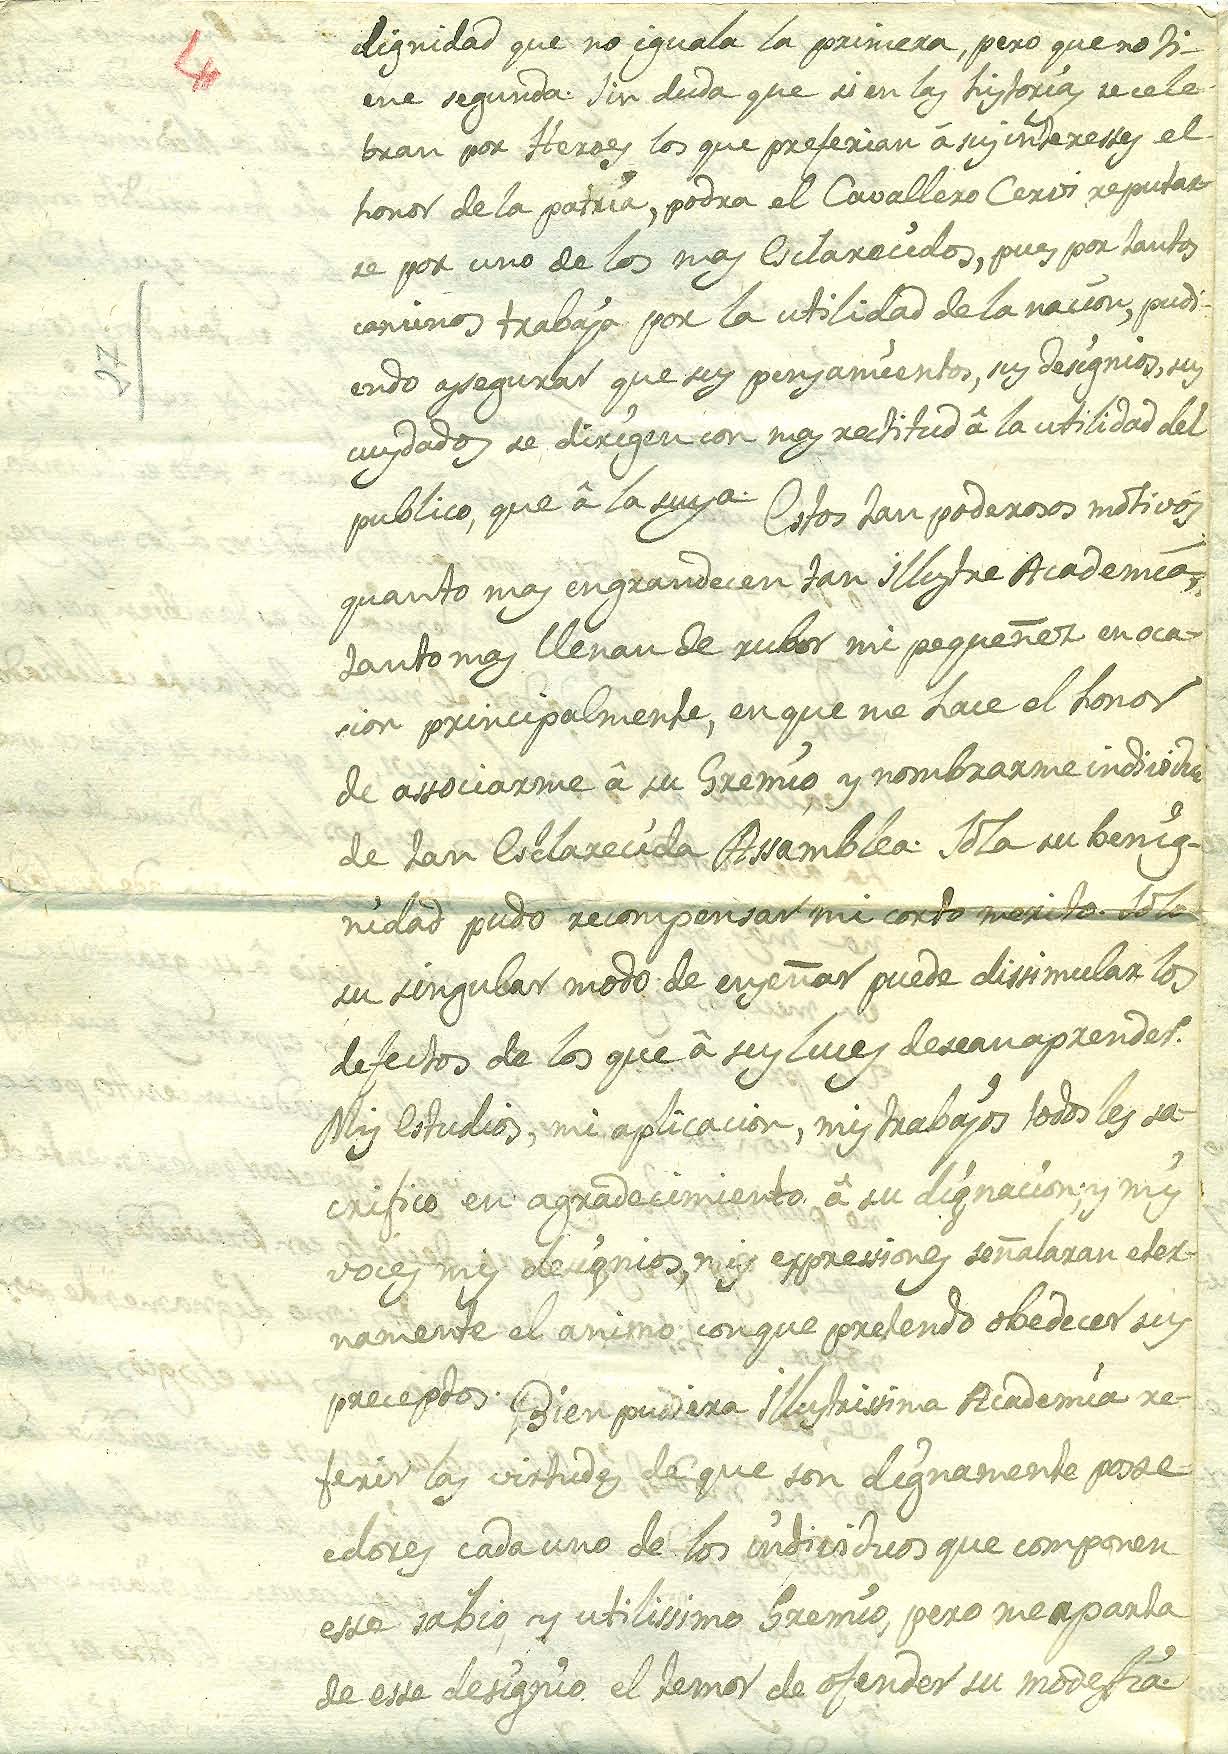 4
27
dignidad que no iguala la primera, pero que no ti-
ene segunda. Sin duda que si en las historias se cele-
bran por Heroes los que preferian â sus interesses el
honor de la patria, podra el Cavallero Cervi reputar-
se por uno de los mas Esclarecidos, pues por tantos
caminos trabaja por la utilidad de la nacion, pudi-
endo assegurar que sus pensamientos, sus designios, sus
cuydados se dirigen con mas rectitud â la utilidad del
publico, que â la suya. Estos tan poderosos motivos
quanto mas engrandecen tan Illustre Academia,
tanto mas llenan de rubor mi pequeñez en oca-
sion principalmente, en que me hace el honor
de associarme â su Gremio y nombrarme individuo
de tan Esclarecida Assamblea. Sola su benig-
nidad pudo recompensar mi corto merito. Solo
su singular modo de enseñar puede dissimular los
defectos de los que â sus luces desean aprender.
Mis Estudios, mi aplicacion, mis trabajos todos les sa-
crifico en agradecimiento â su dignacion, y mis
voces mis designios, mis expressiones señalaran eter-
namente el animo con que pretendo obedecer sus
preceptos. Bien pudiera Illustrissima Academia re-
ferir las virtudes de que son dignamente posse-
edores cada uno de los individuos que componen
esse sabio, y utilissimo Gremio, pero me aparta
de esse designio el temor de ofender su modestia.